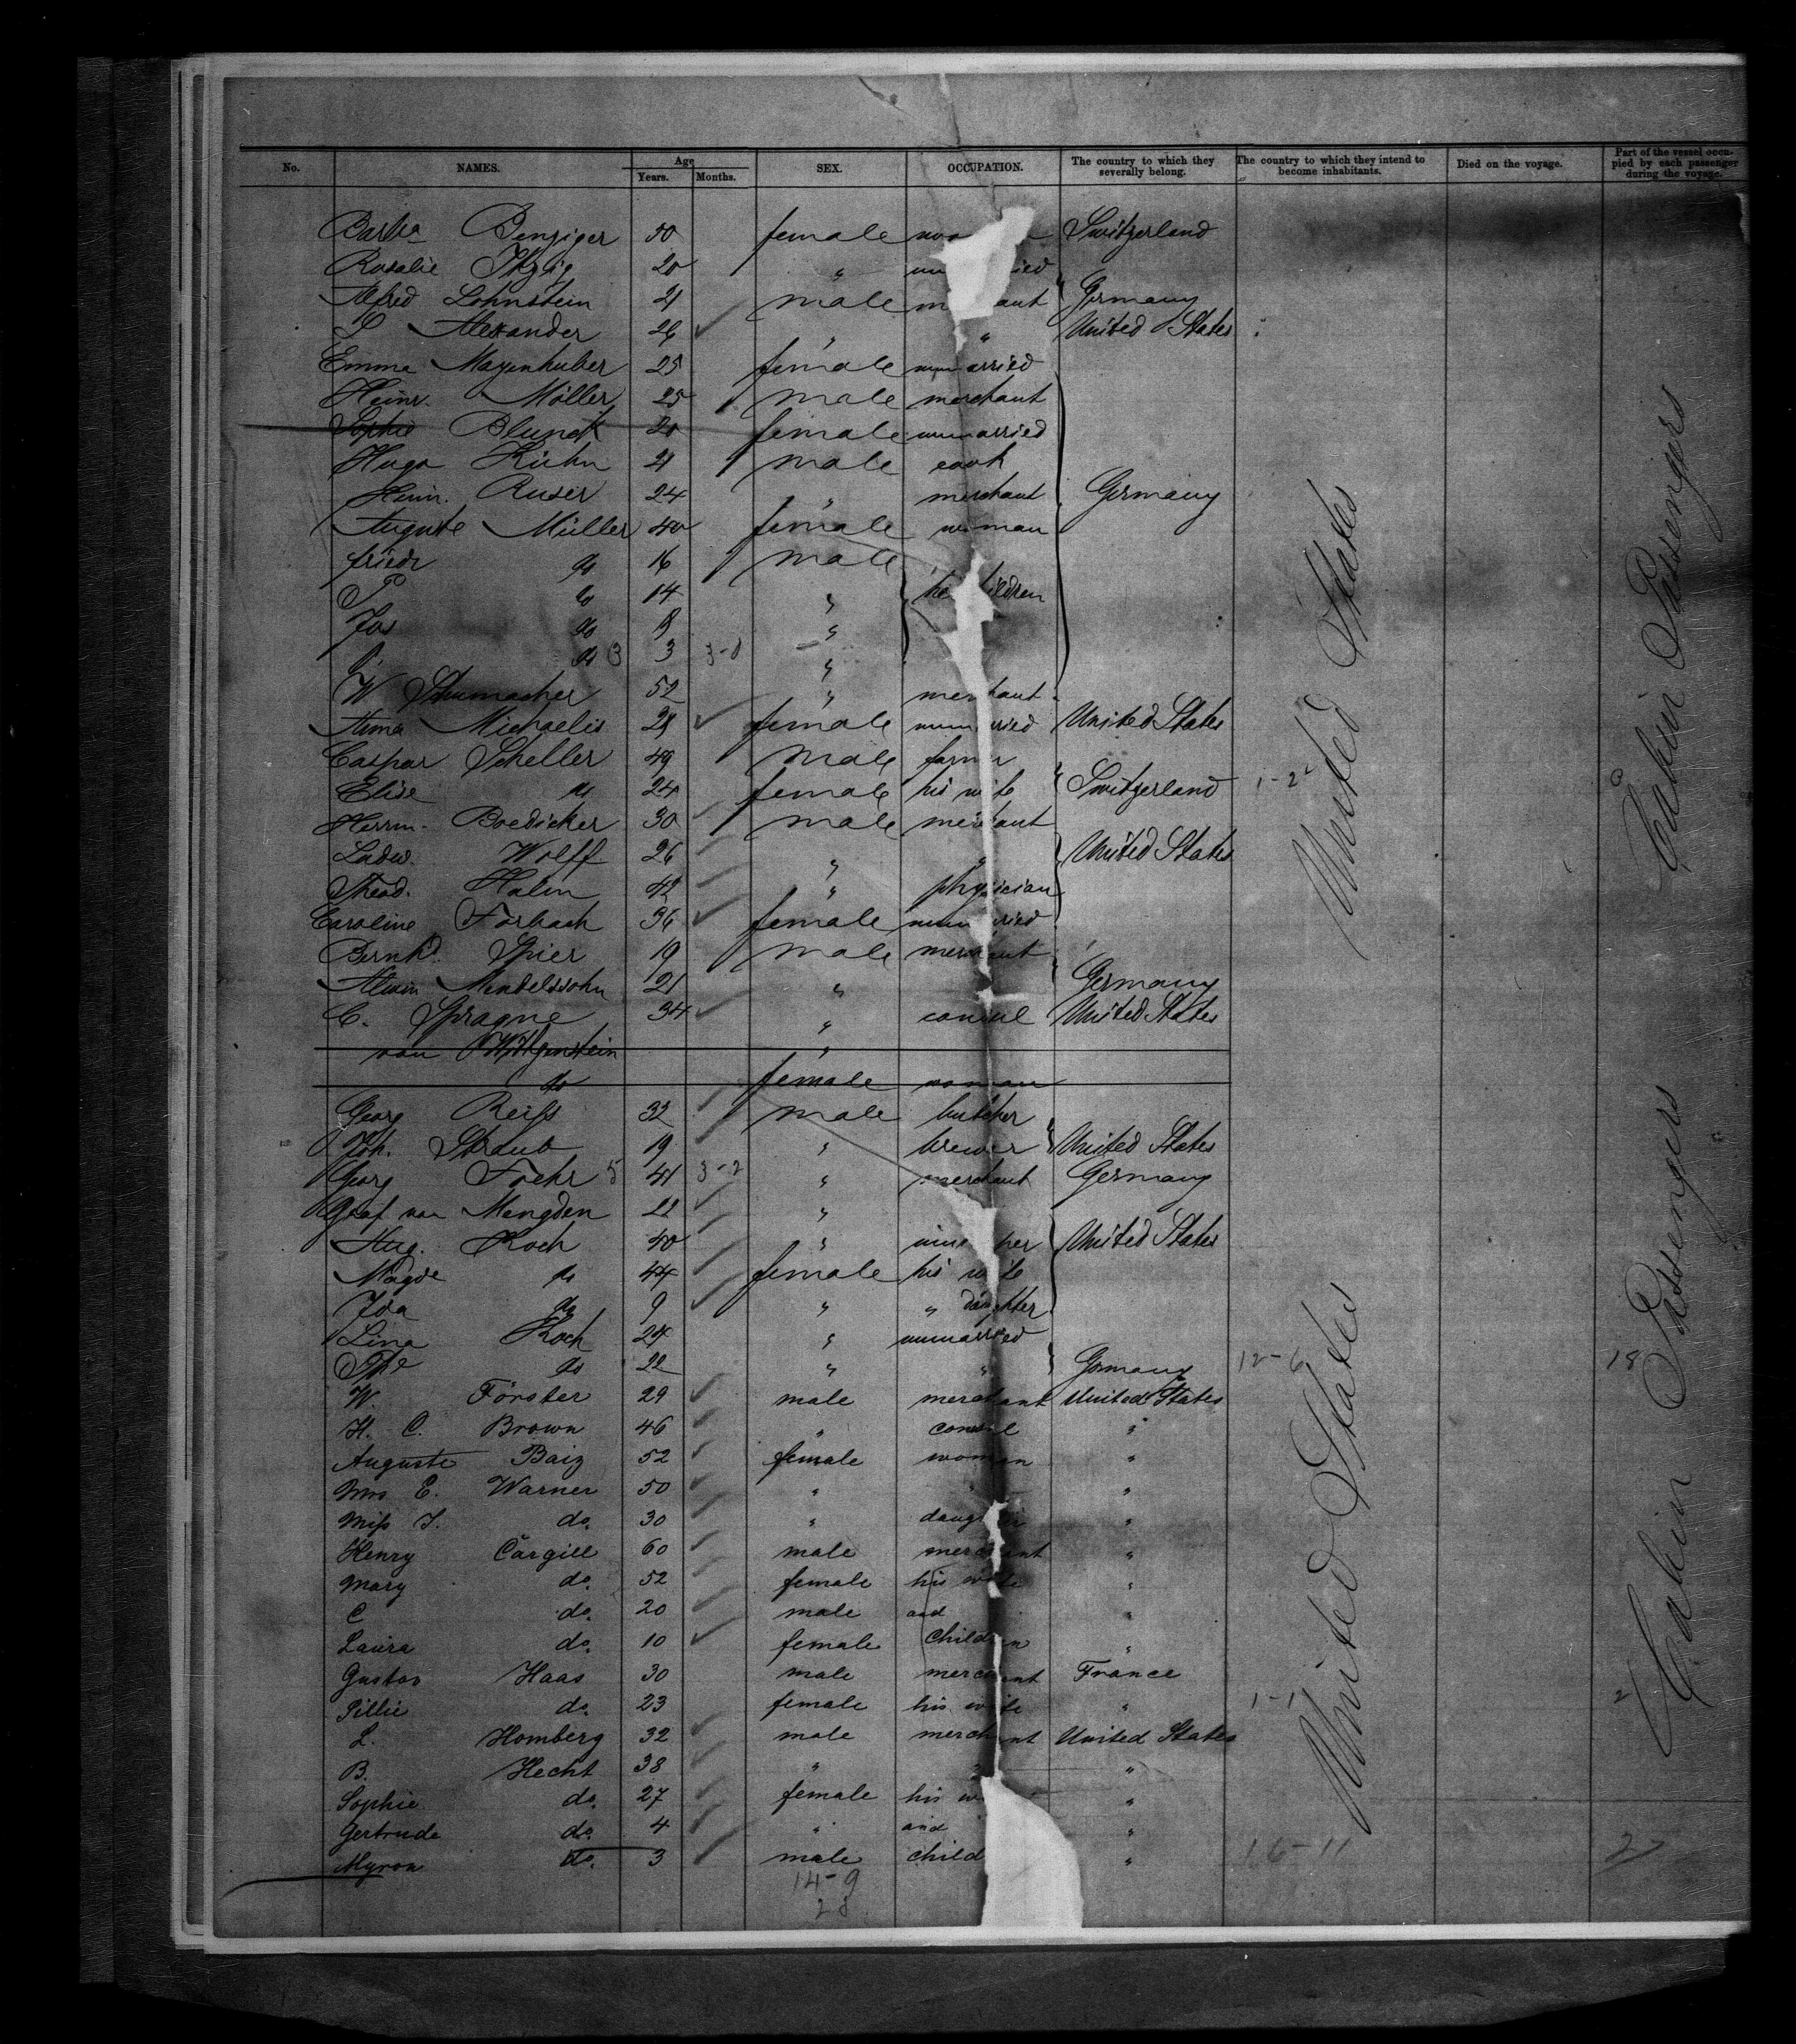 No. NAMES. Age Years. Months. SEX. OCCUPATION. The country to which they severally belong. The country to which they intend to become inhabitants. Died on the voyage. Part of the vessel occupied by each passenger during the voyage.
Barba Benziger 50 female wo Switzerland
Rosalie Itzig 20 " un ied
Alfred Lohnstein 21 male m ant Germany
S Alexander 26 " " United States
Emma Mayenhuber 25 female unmarried
Heinr. Möller 25 male merchant
Sophie Blunck 20 female unmarried
Hugo Kuhn 21 male cook
Heinr. Ruser 24 " merchant Germany
Auguste Müller 40 female woman
friedr do 16 male
P do 14 " he ildren
Jos do 9 "
do 3 3 3-8 "
W Schumacher 52 " merchant
Anna Michaelis 28 female unmarried United States
Caspar Scheller 49 male farmer
Elise do 24 female his wife Switzerland 1-2
Herrm. Boedicker 30 male merchant
Ludw. Wolff 26 " " United States
Theod. Halm 42 " physician
Caroline Forbach 36 female unmarried
Bernhd. Spier 19 male merchant
Alwin Mendelssohn 21 " Germany
C. Sprague 34 " consul United States
von Wittgenstein "
do female woman
Georg Reiss 32 male butcher
Joh. Straub 19 " brewer United States
Georg Foehr 5 41 3-2 " merchant Germany
Graf von Mengden 22 "
Aug. Koch 40 " her United States
Magde do 44 female his wife
Ida do 9 " " daughter
Lina Koch 24 " unmarried
do 22 " " Germany 12-6 18
W. Förster 29 male merchant United States
H. C. Brown 46 " consul "
Auguste Baiz 52 female woman "
Mrs E. Warner 50 " "
Miss I. do. 30 " daughter "
Henry Cargill 60 male merchant "
Mary do. 52 female his wife "
C do. 20 male and "
Laura do. 10 female Children "
Gustav Haas 30 male merchant France
Tillie do. 23 female his wife " 1-1 2
L. Homberg 32 male merchant United States
B. Hecht 38 " " "
Sophie do. 27 female his w "
Gertrude do. 4 " and "
Myron do. 3 male child " 16-11 27
14-9
28
United States
Cabin Passengers
United States
Cabin Passengers